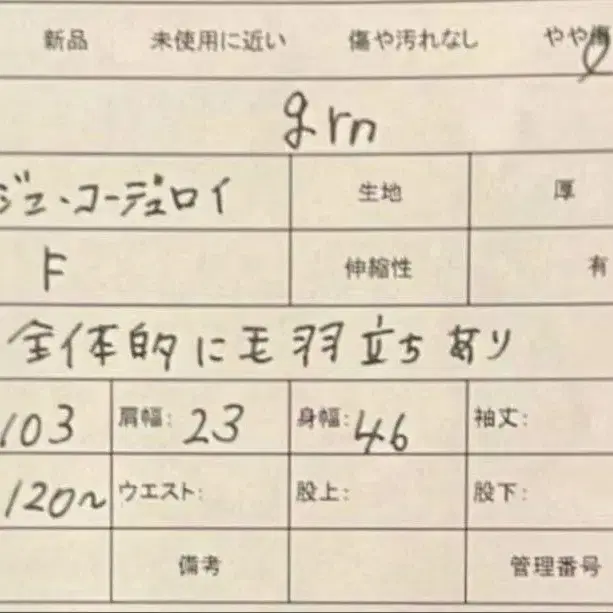 新品 未使用に近い 傷や汚れなし やや傷
grn
ジュ・コーデュロイ 生地 厚
F 伸縮性 有
全体的に毛羽立ちあり
103 肩幅: 23 身幅: 46 袖丈:
120~ ウエスト: 股上: 股下:
備考 管理番号